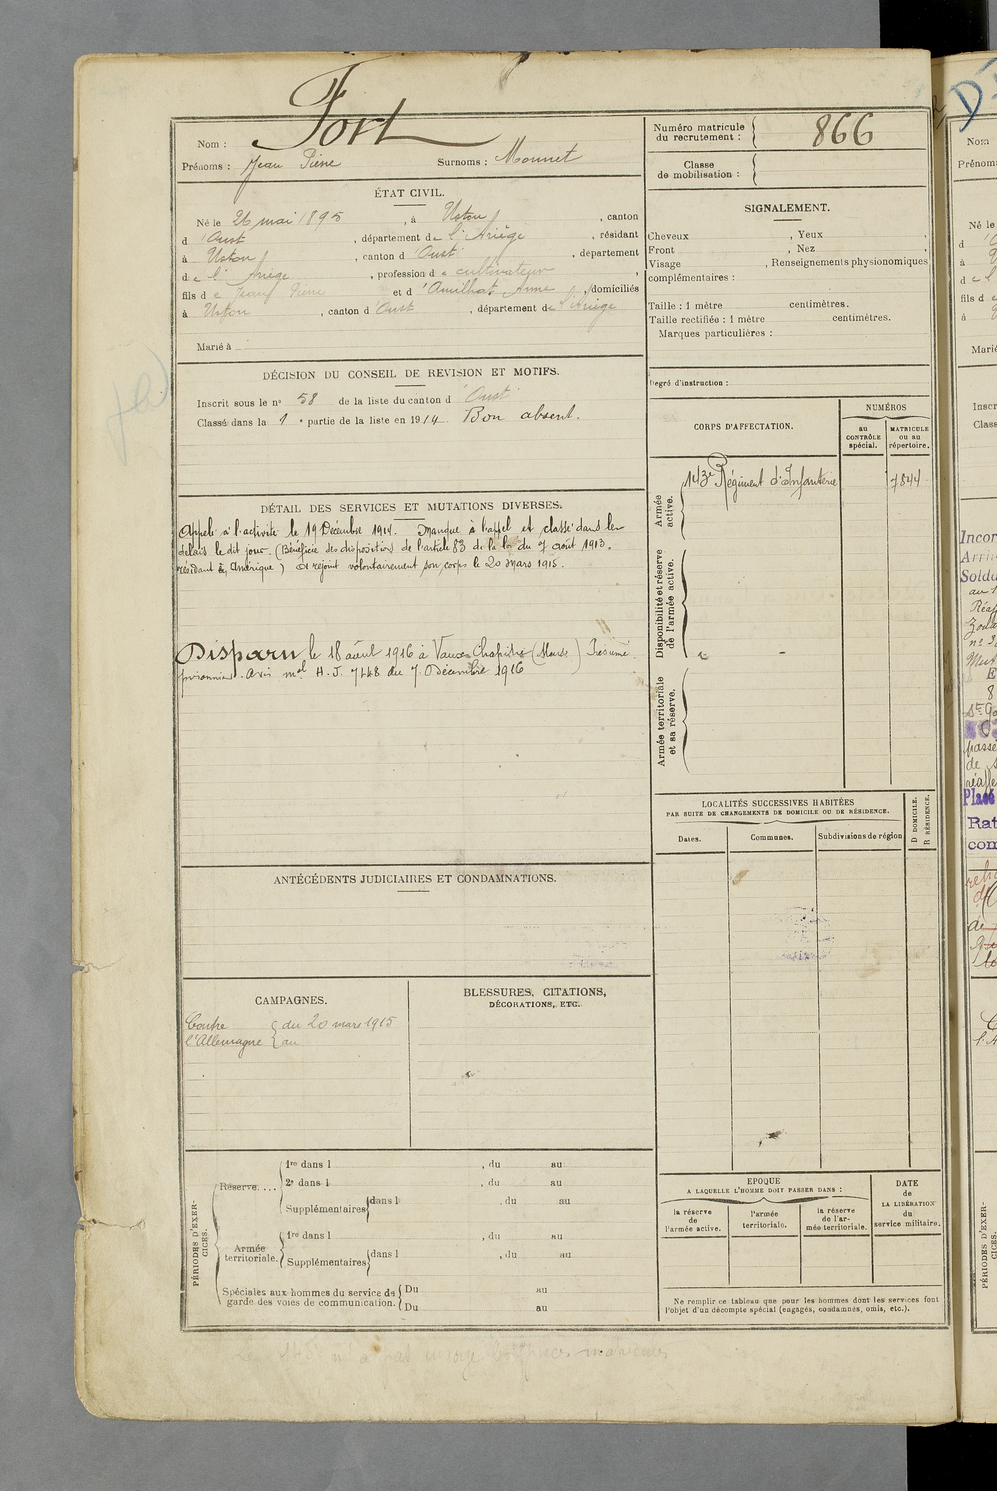 Fort
Nom :
Prénoms : Jean Pierre Surnoms : Mounet
Numéro matricule
du recrutement : 866
Classe
de mobilisation :
ÉTAT CIVIL.
Né le 26 mai 1895, à Ustou, canton
d'Oust, département de l'Ariège, résidant
à Ustou, canton d'Oust, département
de l'Ariège, profession de cultivateur,
fils de Jean Pierre et d'Amilhat Anne, domiciliés
à Ustou, canton d'Oust, département de l'Ariège
Marié à
SIGNALEMENT.
Cheveux , Yeux ,
Front , Nez ,
Visage , Renseignements physionomiques
complémentaires :
Taille : 1 mètre centimètres.
Taille rectifiée : 1 mètre centimètres.
Marques particulières :
Degré d'instruction :
DÉCISION DU CONSEIL DE REVISION ET MOTIFS.
Inscrit sous le n° 58 de la liste du canton d'Oust
Classé dans la 1e partie de la liste en 1914. Bon absent.
CORPS D'AFFECTATION.
NUMÉROS
au
CONTRÔLE
spécial.
MATRICULE
ou au
répertoire.
Armée
active.
143e Régiment d'Infanterie 7844
Disponibilité et réserve
de l'armée active.
Armée territoriale
et sa réserve.
DÉTAIL DES SERVICES ET MUTATIONS DIVERSES.
Appelé à l'activité le 19 Décembre 1914. Manque à l'appel et classé dans les
délais le dit jour. (Bénéficie des dispositions de l'article 83 de la loi du 7 août 1913.
résidant en Amérique) A rejoint volontairement son corps le 20 mars 1915.
Disparu le 18 avril 1916 à Vaux-Chapitre (Meuse) Présumé
prisonnier. Avis mel H.J. 7448 du 7 Décembre 1916
LOCALITÉS SUCCESSIVES HABITÉES
PAR SUITE DE CHANGEMENTS DE DOMICILE OU DE RÉSIDENCE.
Dates.
Communes.
Subdivisions de région
D DOMICILE.
R RÉSIDENCE.
ANTÉCÉDENTS JUDICIAIRES ET CONDAMNATIONS.
CAMPAGNES.
Contre du 20 mars 1915
l'Allemagne au
BLESSURES, CITATIONS,
DÉCORATIONS, ETC.
PÉRIODES D'EXER-
CICES.
Réserve....
1re dans l , du au
2e dans l , du au
Supplémentaires dans l , du au
Armée
territoriale.
1re dans l , du au
Supplémentaires dans l , du au
Spéciales aux hommes du service de
garde des voies de communication.
Du au
Du au
EPOQUE
A LAQUELLE L'HOMME DOIT PASSER DANS :
la réserve
de
l'armée active.
l'armée
territoriale.
la réserve
de l'ar-
mée territoriale.
DATE
de
LA LIBÉRATION
du
service militaire.
Ne remplir ce tableau que pour les hommes dont les services font
l'objet d'un décompte spécial (engagés, condamnés, omis, etc.).